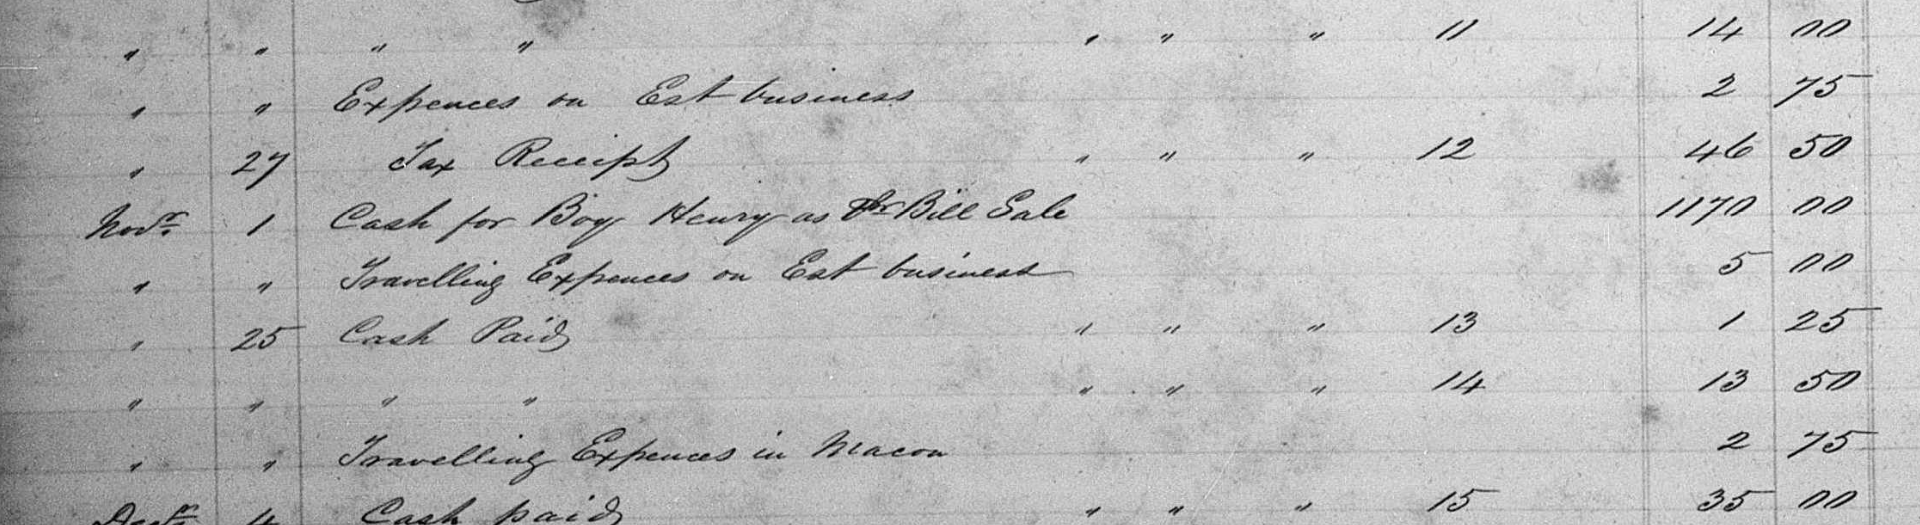 " " " " " " " 11 14 00
" " Expences on Est business 2 75
" 27 Tax Receipt " " " 12 46 50
Novr. 1 Cash for Boy Henry as Pr Bill Sale 1170 00
" " Travelling Expences on Est business 5 00
" 25 Cash Paid " " " 13 1 25
" " " " " " " 14 13 50
" " Travelling Expences in Macon 2 75
Decr. 4 Cash paid " " " 15 35 00